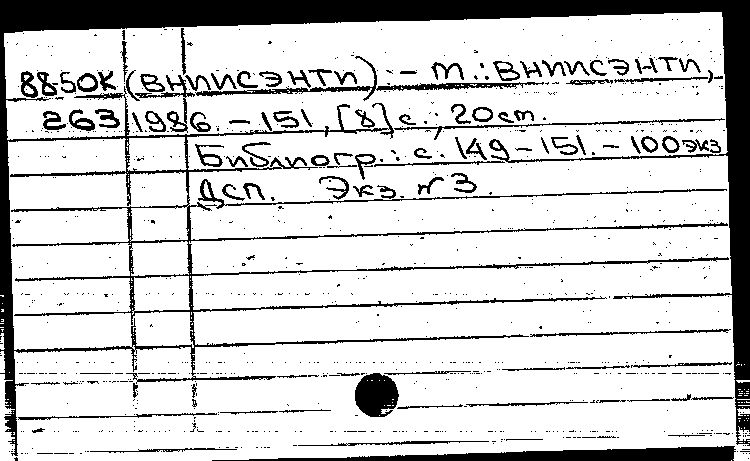 8850к (ВНИИСЭНТИ). – М.: ВНИИСЭНТИ,
263 1986. – 151, [8] с.; 20 см.
Библиогр.: с. 149 – 151. – 100 экз
ДСП. Экз. № 3.